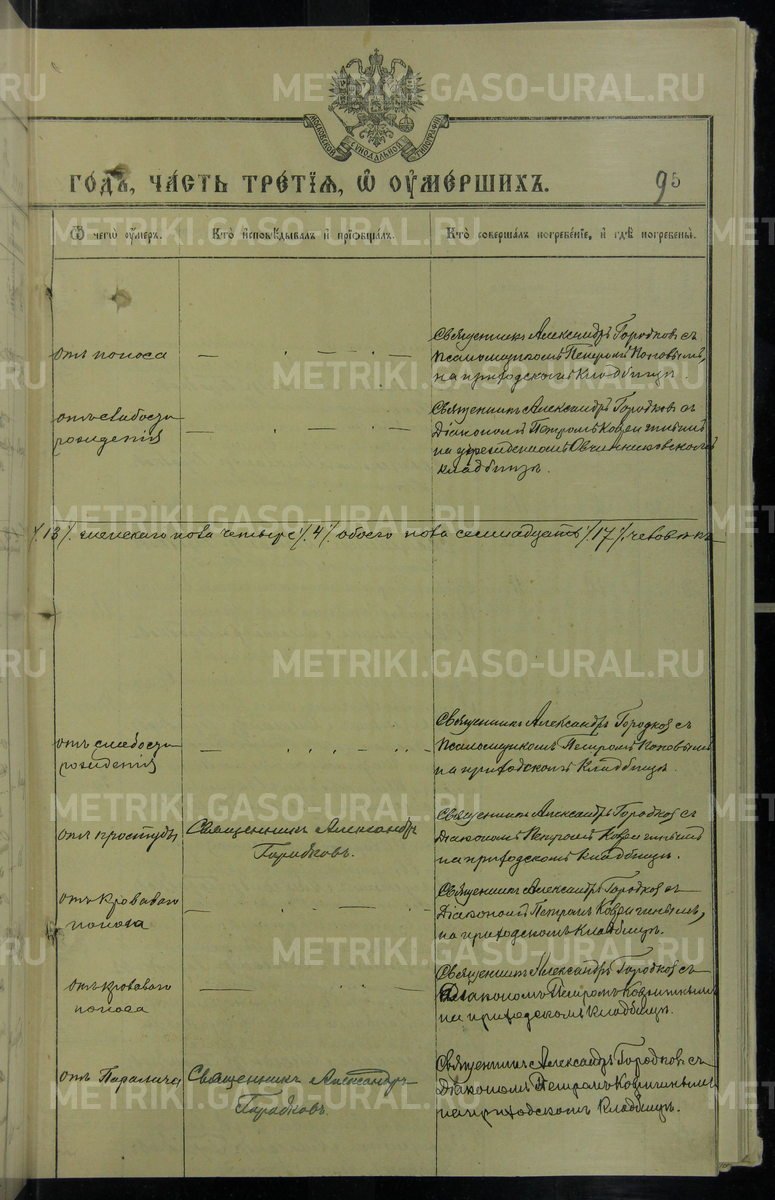 METRIKI.GASO-URAL.RU
МОСКОВСКОЙ СѴНОДАЛЬНОЙ ТИПОГРАФІИ
го́дъ, ча́сть тре́тїѧ, ѡ҆ ᲂу҆ме́ршихъ.
95
Ѿ чегѡ̀ ᲂу҆́меръ.
Кто̀ и҆сповѣ́дывалъ и҆ прїѡбща́лъ.
Кто̀ соверша́лъ погребе́нїе, и҆ гдѣ̀ погребены̀.
отъ поноса
— — —
Священникъ Александръ Городковъ съ
псаломщикомъ Петромъ Поповымъ,
на приходскомъ кладбищѣ
отъ слабости
рожденія
— — —
Священникъ Александръ Городковъ съ
Діакономъ Петромъ
на Овчинниковскомъ
кладбищѣ.
/13/. женскаго пола четыре /4/. обоего пола семнадцать /17/. человѣкъ
отъ слабости
рожденія
— — —
Священникъ Александръ Городковъ съ
псаломщикомъ Петромъ Поповымъ
на приходскомъ кладбищѣ.
отъ простуды
Священникъ Александръ
Городковъ.
Священникъ Александръ Городковъ съ
Діакономъ Петромъ
на приходскомъ кладбищѣ.
отъ кроваваго
поноса
— — —
Священникъ Александръ Городковъ съ
Діакономъ Петромъ
на приходскомъ кладбищѣ.
отъ кроваваго
поноса
— — —
Священникъ Александръ Городковъ съ
Діакономъ Петромъ
на приходскомъ кладбищѣ.
отъ Паралича
Священникъ Александръ
Городковъ.
Священникъ Александръ Городковъ съ
Діакономъ Петромъ
на приходскомъ кладбищѣ.